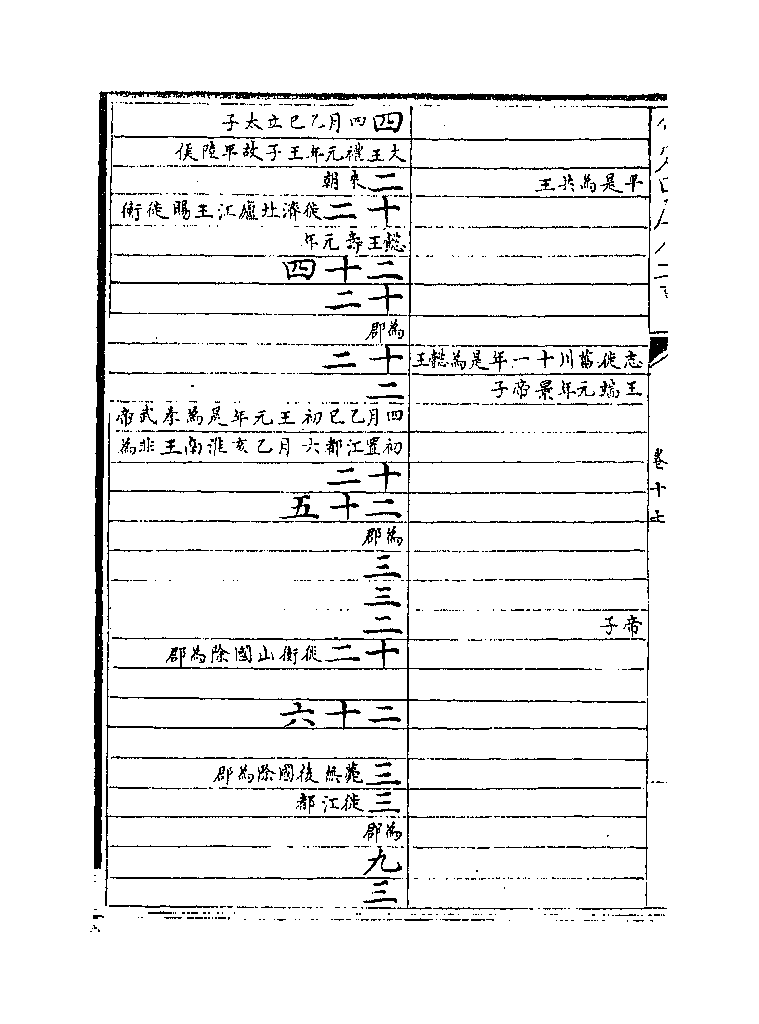 卷十七
平是為共王
志徙菑川十一年是為懿王
王端元年景帝子
帝子
四四月乙巳立太子
大王禮元年王子故平陸侯
二來朝
十二徙濟北廬江王賜徙衡
懿王壽元年
二十四
十二
為郡
十二
二
四月乙巳初王元年是為孝武帝
初置江都六月乙亥淮南王非為
十二
二十五
為郡
三
三
二
十二徙衡山國除為郡
二十六
三薨無後國除為郡
三徙江都
為郡
九
三